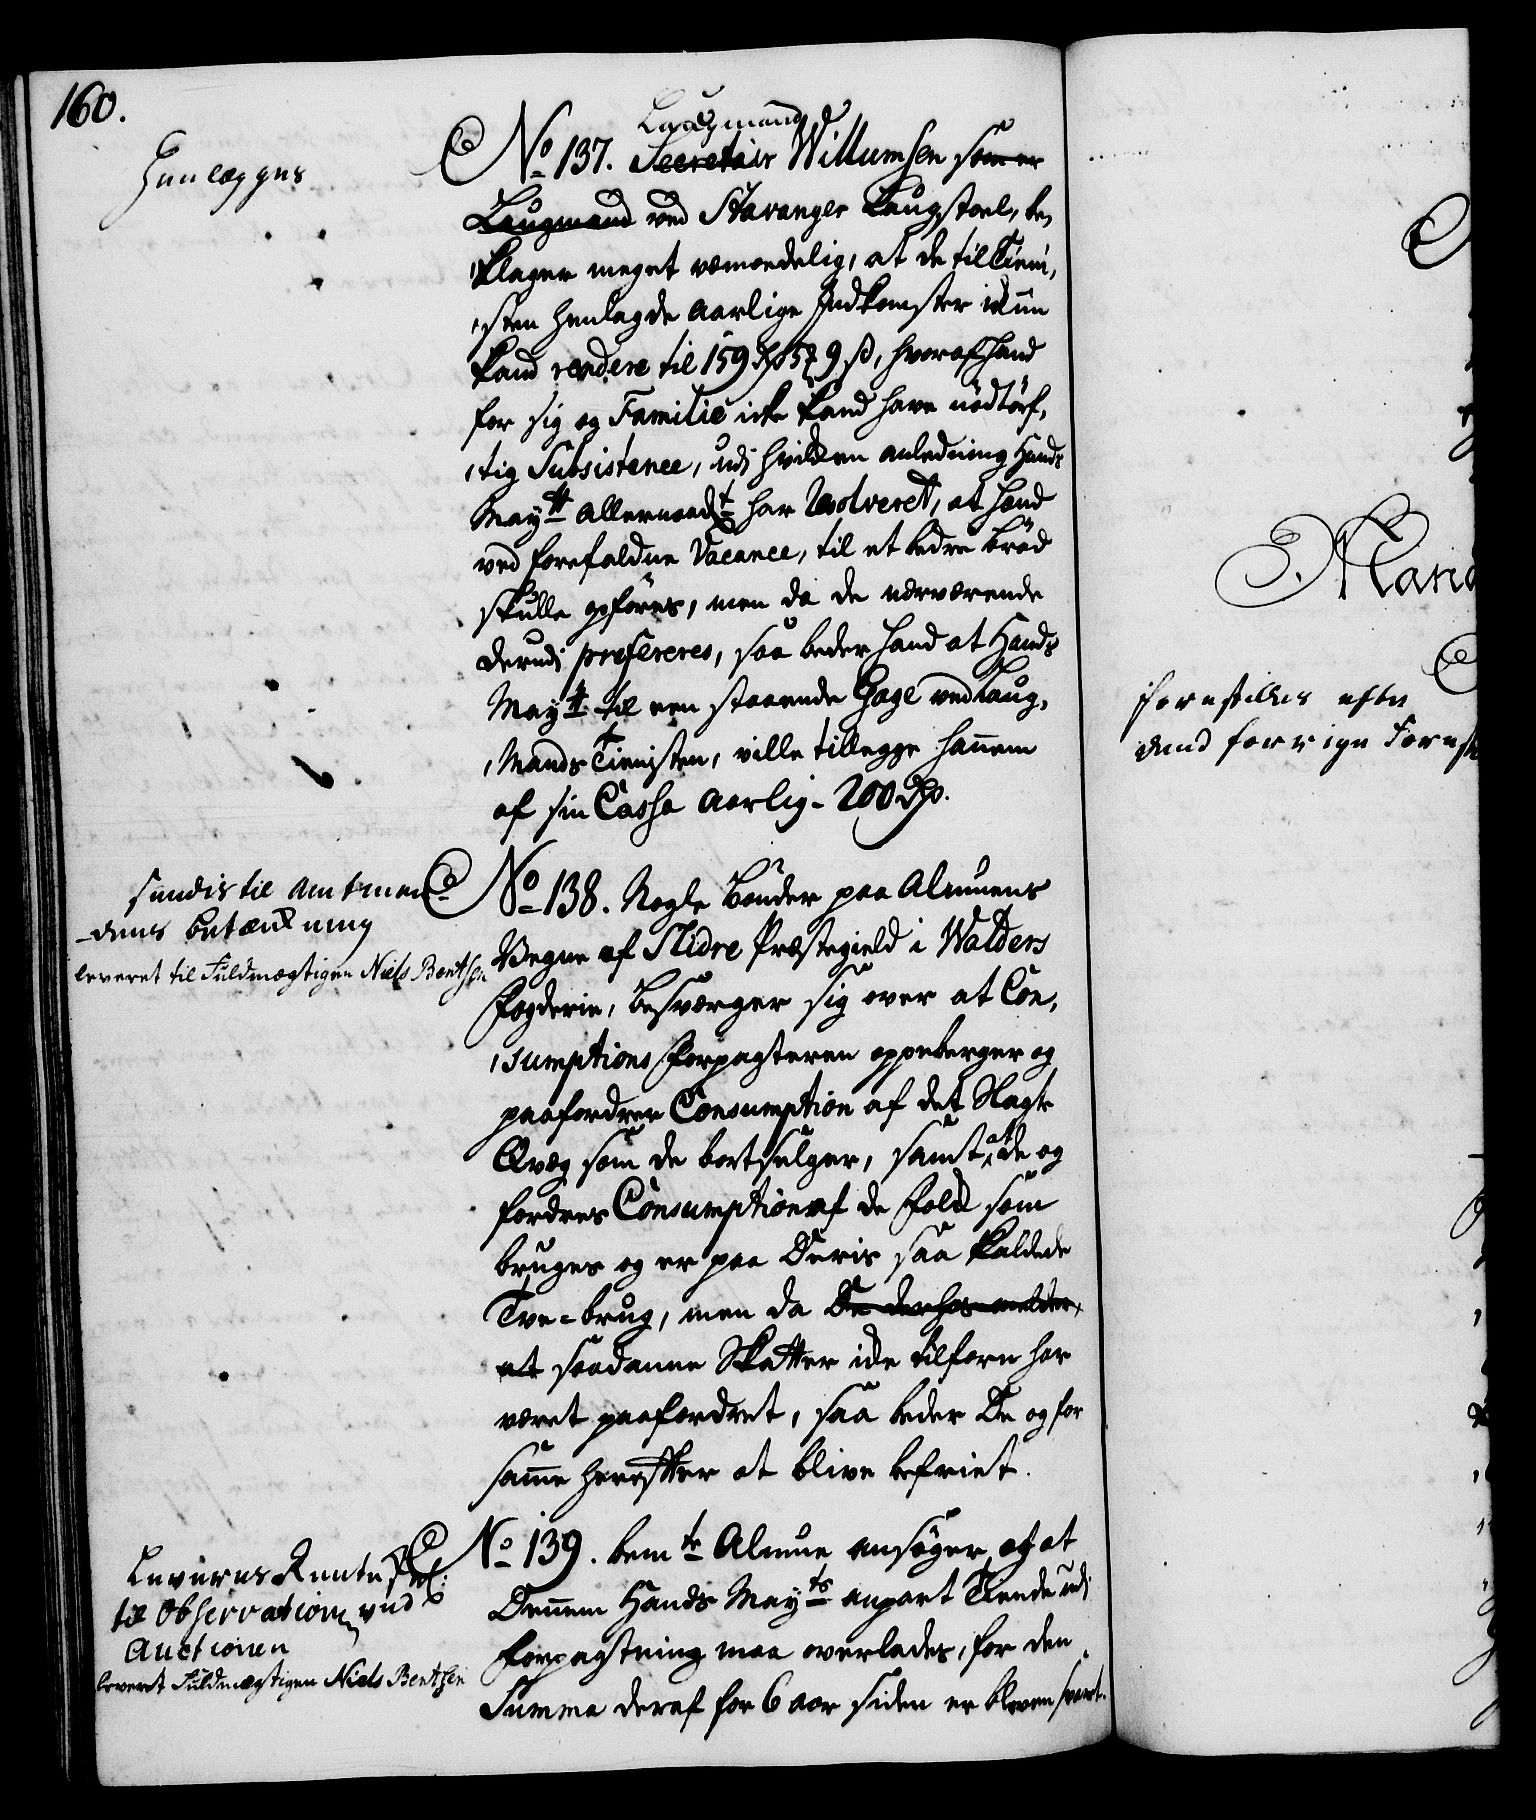 160.
Henlægges
No 137. Laugmand
Secretair Willumsen som er
Laugmand ved Stavanger Laugstoel, be,
klager meget vemoedelig, at de til Tieni,
sten henlagde aarlige Indkomster ickun
kand rendere til 159 Rd 57 9 ß, hvoraf hand
for sig og Familie icke kand have nödtörf,
tig Subsistence, udi hvilcken anledning Hands
Maytt allernaadt har Resolveret, at hand
ved forefaldne Vacance, til et bedre bröd
skulle opföres, men da de nærværende
derudi prefereres, saa beder hand at Hands
Maytt til een staaende Gage ved Laug,
Mands Tienisten, ville tillegge hannem
af sin Cassa aarlig - 200 Rd.
sendis til Amtman-
dens betænkning
leveret til Fuldmægtigen Niels Bentsen
No 138. Nogle bönder paa Almuens
Vegne af Slidre Præstegield i Walders
Fogderie, besværger sig over at Con,
sumptions Forpagteren oppeberger og
paafordrer Consumption af det Slagte
Qvæg som de bortselger, samt at de og
fordres Consumption af de Folck som
bruges og er paa Deris saa kaldede
Tve=brug, men da De derhos melder,
at saadanne Skatter icke tilforn har
været paafordret, saa beder De og for
samme herefter at blive befriet.
Leveres Renteskr:
til Observation ved
Auctionen
leveret Fuldmægtigen Niels Bentsen
No 139. bemte Almue ansöger og at
Dennem Hands Mayts anpart Tiende udi
forpagtning maa overlades, for den
Summa deraf for 6 aar siden er bleven svart.
forestilles efter
dend forrige Forest